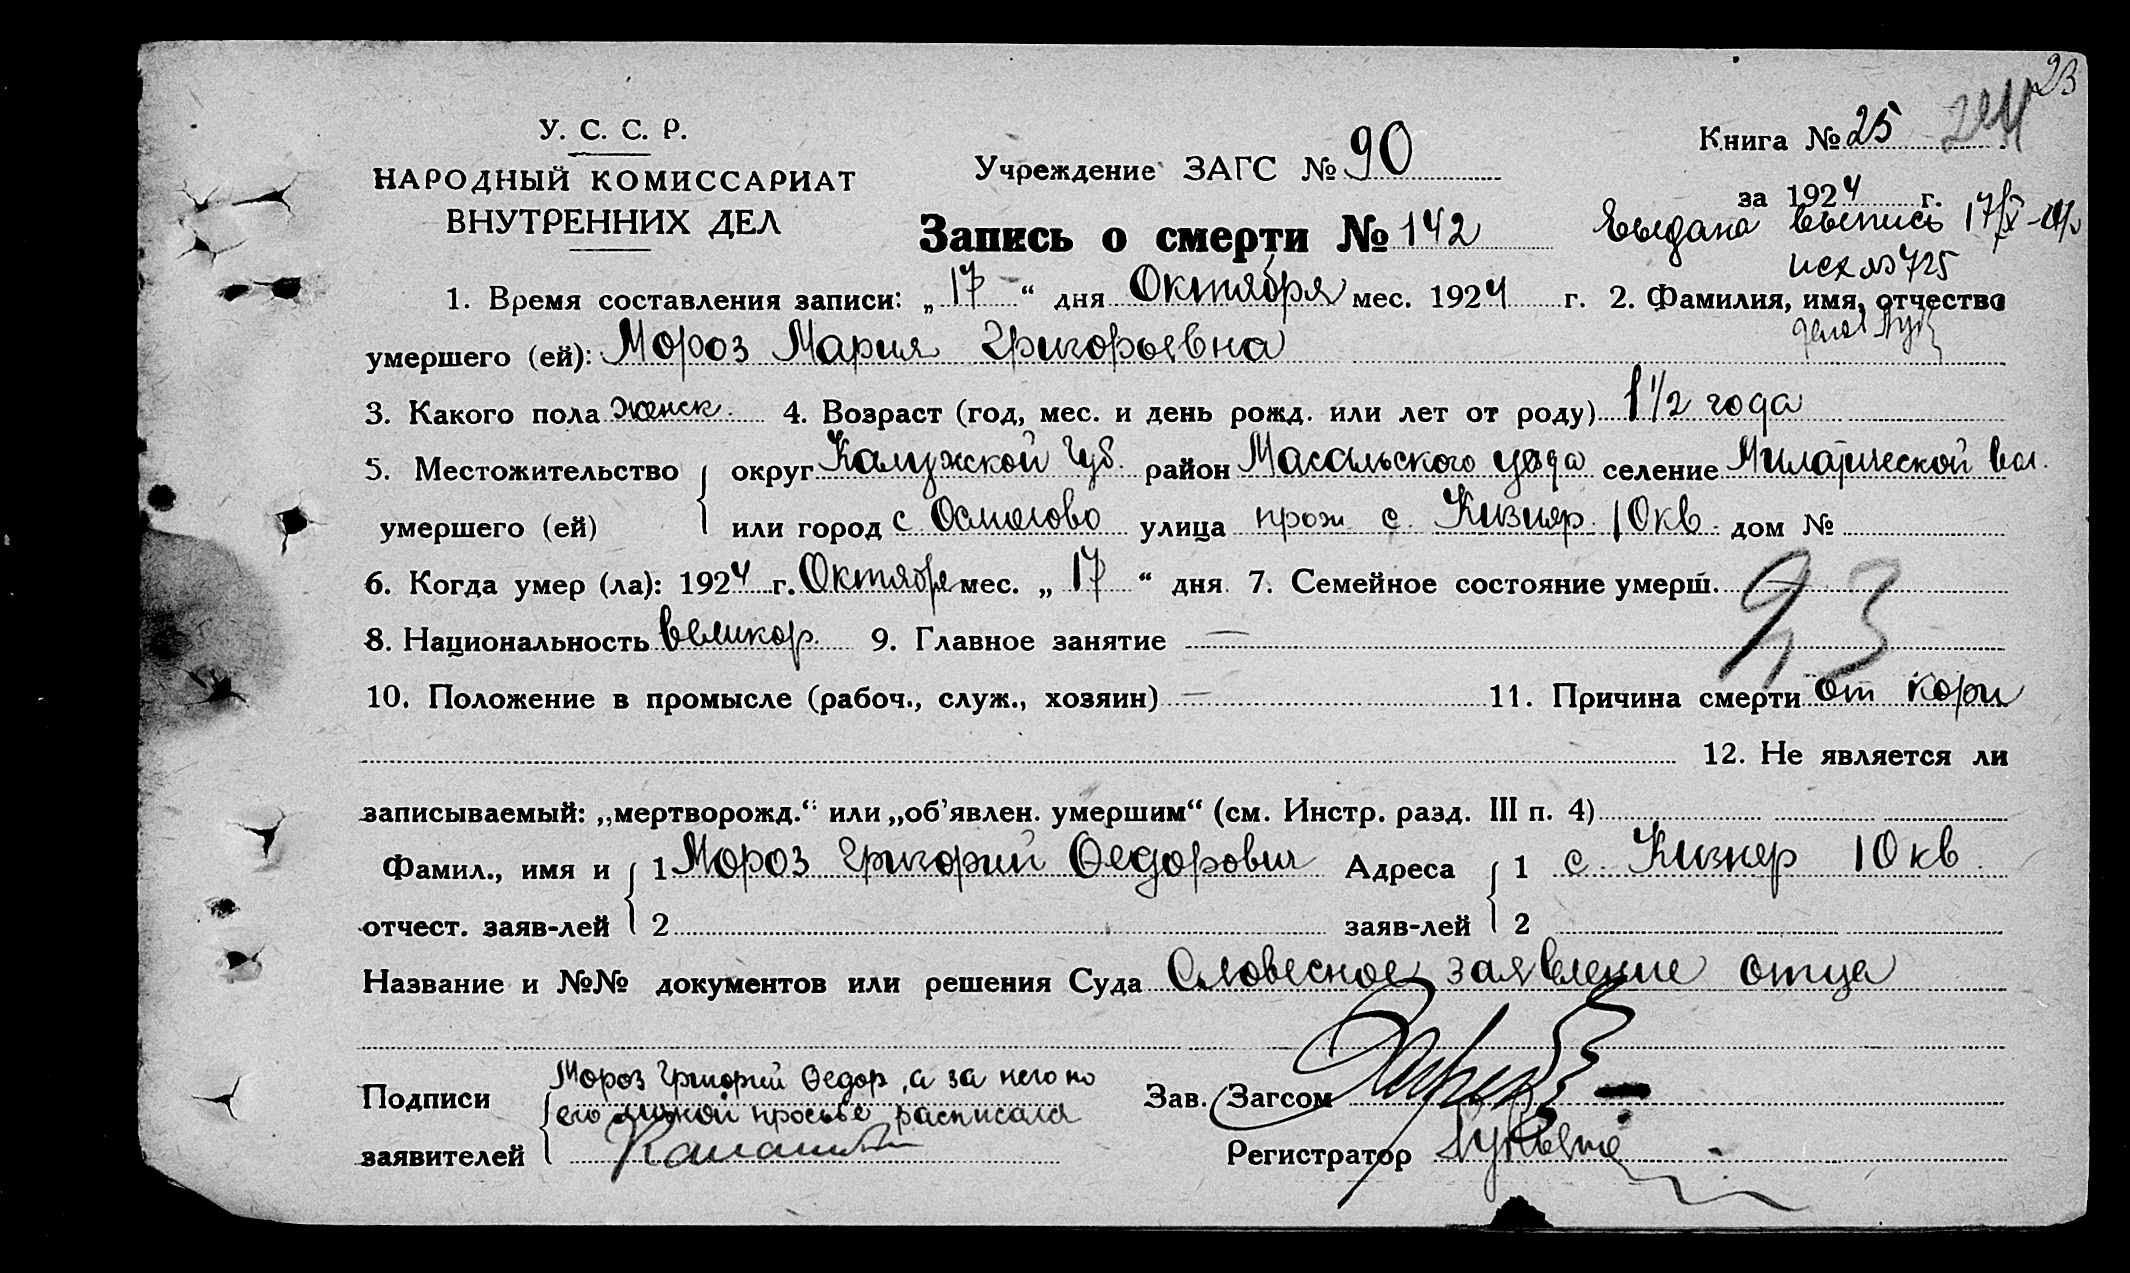 23
У. С. С. Р.
НАРОДНЫЙ КОМИССАРИАТ
ВНУТРЕННИХ ДЕЛ
Учреждение ЗАГС № 90
Книга № 25
за 1924 г.
Запись о смерти № 142
Выдана выпись 17/
исх № 725
1. Время составления записи: „ 17 “ дня Октября мес. 1924 г. 2. Фамилия, имя, отчество
умершего (ей): Мороз Мария Григорьевна
3. Какого пола женск. 4. Возраст (год, мес. и день рожд. или лет от роду) 1 1/2 года
5. Местожительство округ Калужской Губ. район Масальского уезда селение вол.
умершего (ей) или город с Осмолово улица прож с. Кизияр 10 кв. дом №
6. Когда умер (ла): 1924 г. Октября мес. „ 17 “ дня 7. Семейное состояние умерш.
8. Национальность великор. 9. Главное занятие —
23
10. Положение в промысле (рабоч., служ., хозяин) — 11. Причина смерти от кори
12. Не является ли
записываемый: „мертворожд.“ или „об’явлен. умершим“ (см. Инстр. разд. III п. 4)
Фамил., имя и 1 Мороз Григорий Федорович Адреса 1 с. Кизияр 10 кв.
отчест. заяв-лей 2 заяв-лей 2
Название и №№ документов или решения Суда Словесное заявление отца
Мороз Григорий Федор, а за него по
Подписи его личной просьбе расписался Зав. Загсом
заявителей Регистратор